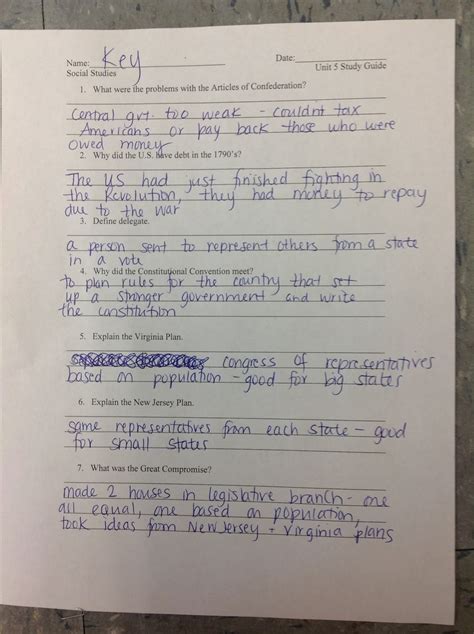 Name: Key Date:
Social Studies Unit 5 Study Guide
1. What were the problems with the Articles of Confederation?
Central gvt. too weak - couldnt tax
Americans or pay back those who were
owed money
2. Why did the U.S. have debt in the 1790's?
The US had just finished fighting in
the Revolution, they had money to repay
due to the war
3. Define delegate.
a person sent to represent others from a state
in a vote
4. Why did the Constitutional Convention meet?
to plan rules for the country that set
up a stronger government and write
the constitution
5. Explain the Virginia Plan.
congress of representatives
based on population - good for big states
6. Explain the New Jersey Plan.
same representatives from each state - good
for small states
7. What was the Great Compromise?
made 2 houses in legislative branch - one
all equal, one based on population,
took ideas from New Jersey + Virginia plans